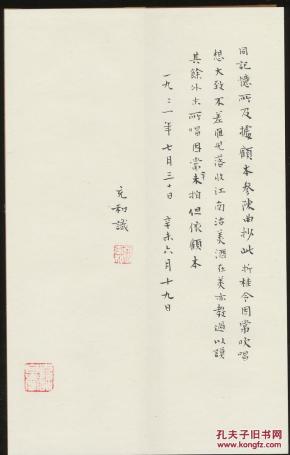 同記憶所及據顧本參陳曲抄此折桂令因常吹唱
想大致不差雁兒落收江南沽美酒在美亦教過以
其餘外末所唱因未拍但依顧本
一九〻一年七月三十日 辛未六月十九日
充和識
孔夫子旧书网